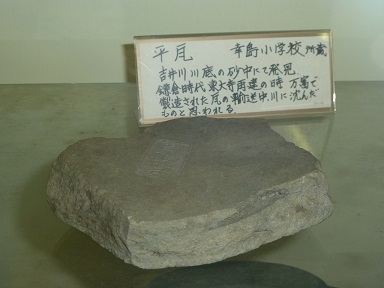 平瓦 幸島小学校 所蔵
吉井川川底の砂中にて発見
鎌倉時代、東大寺再建の時 万富で
製造された瓦の輸送中、川に沈んだ
ものと思われる